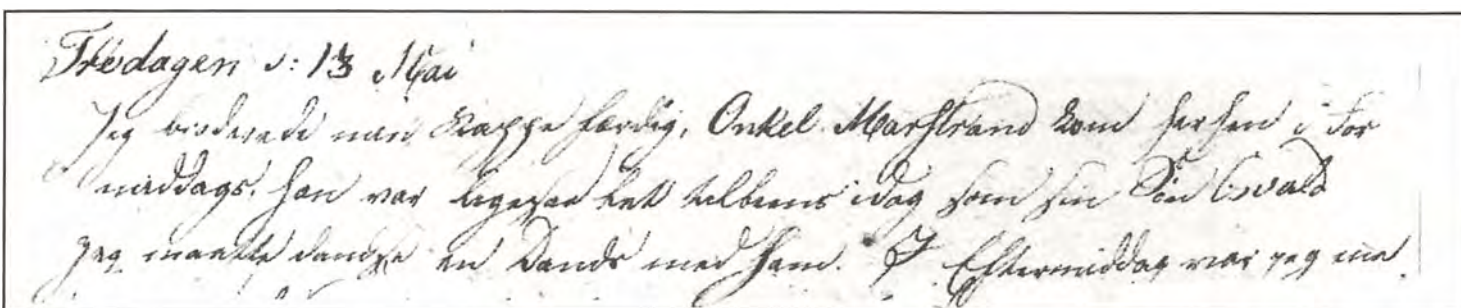 Fredagen d: 13 Mai
Jeg broderede min Kappe færdig, Onkel Marstrand kom herhen i For
middags. han var ligesaa let tilbeens idag som sin Søn Osvald
jeg maatte dandse en Dands med ham. I Eftermiddag var jeg me